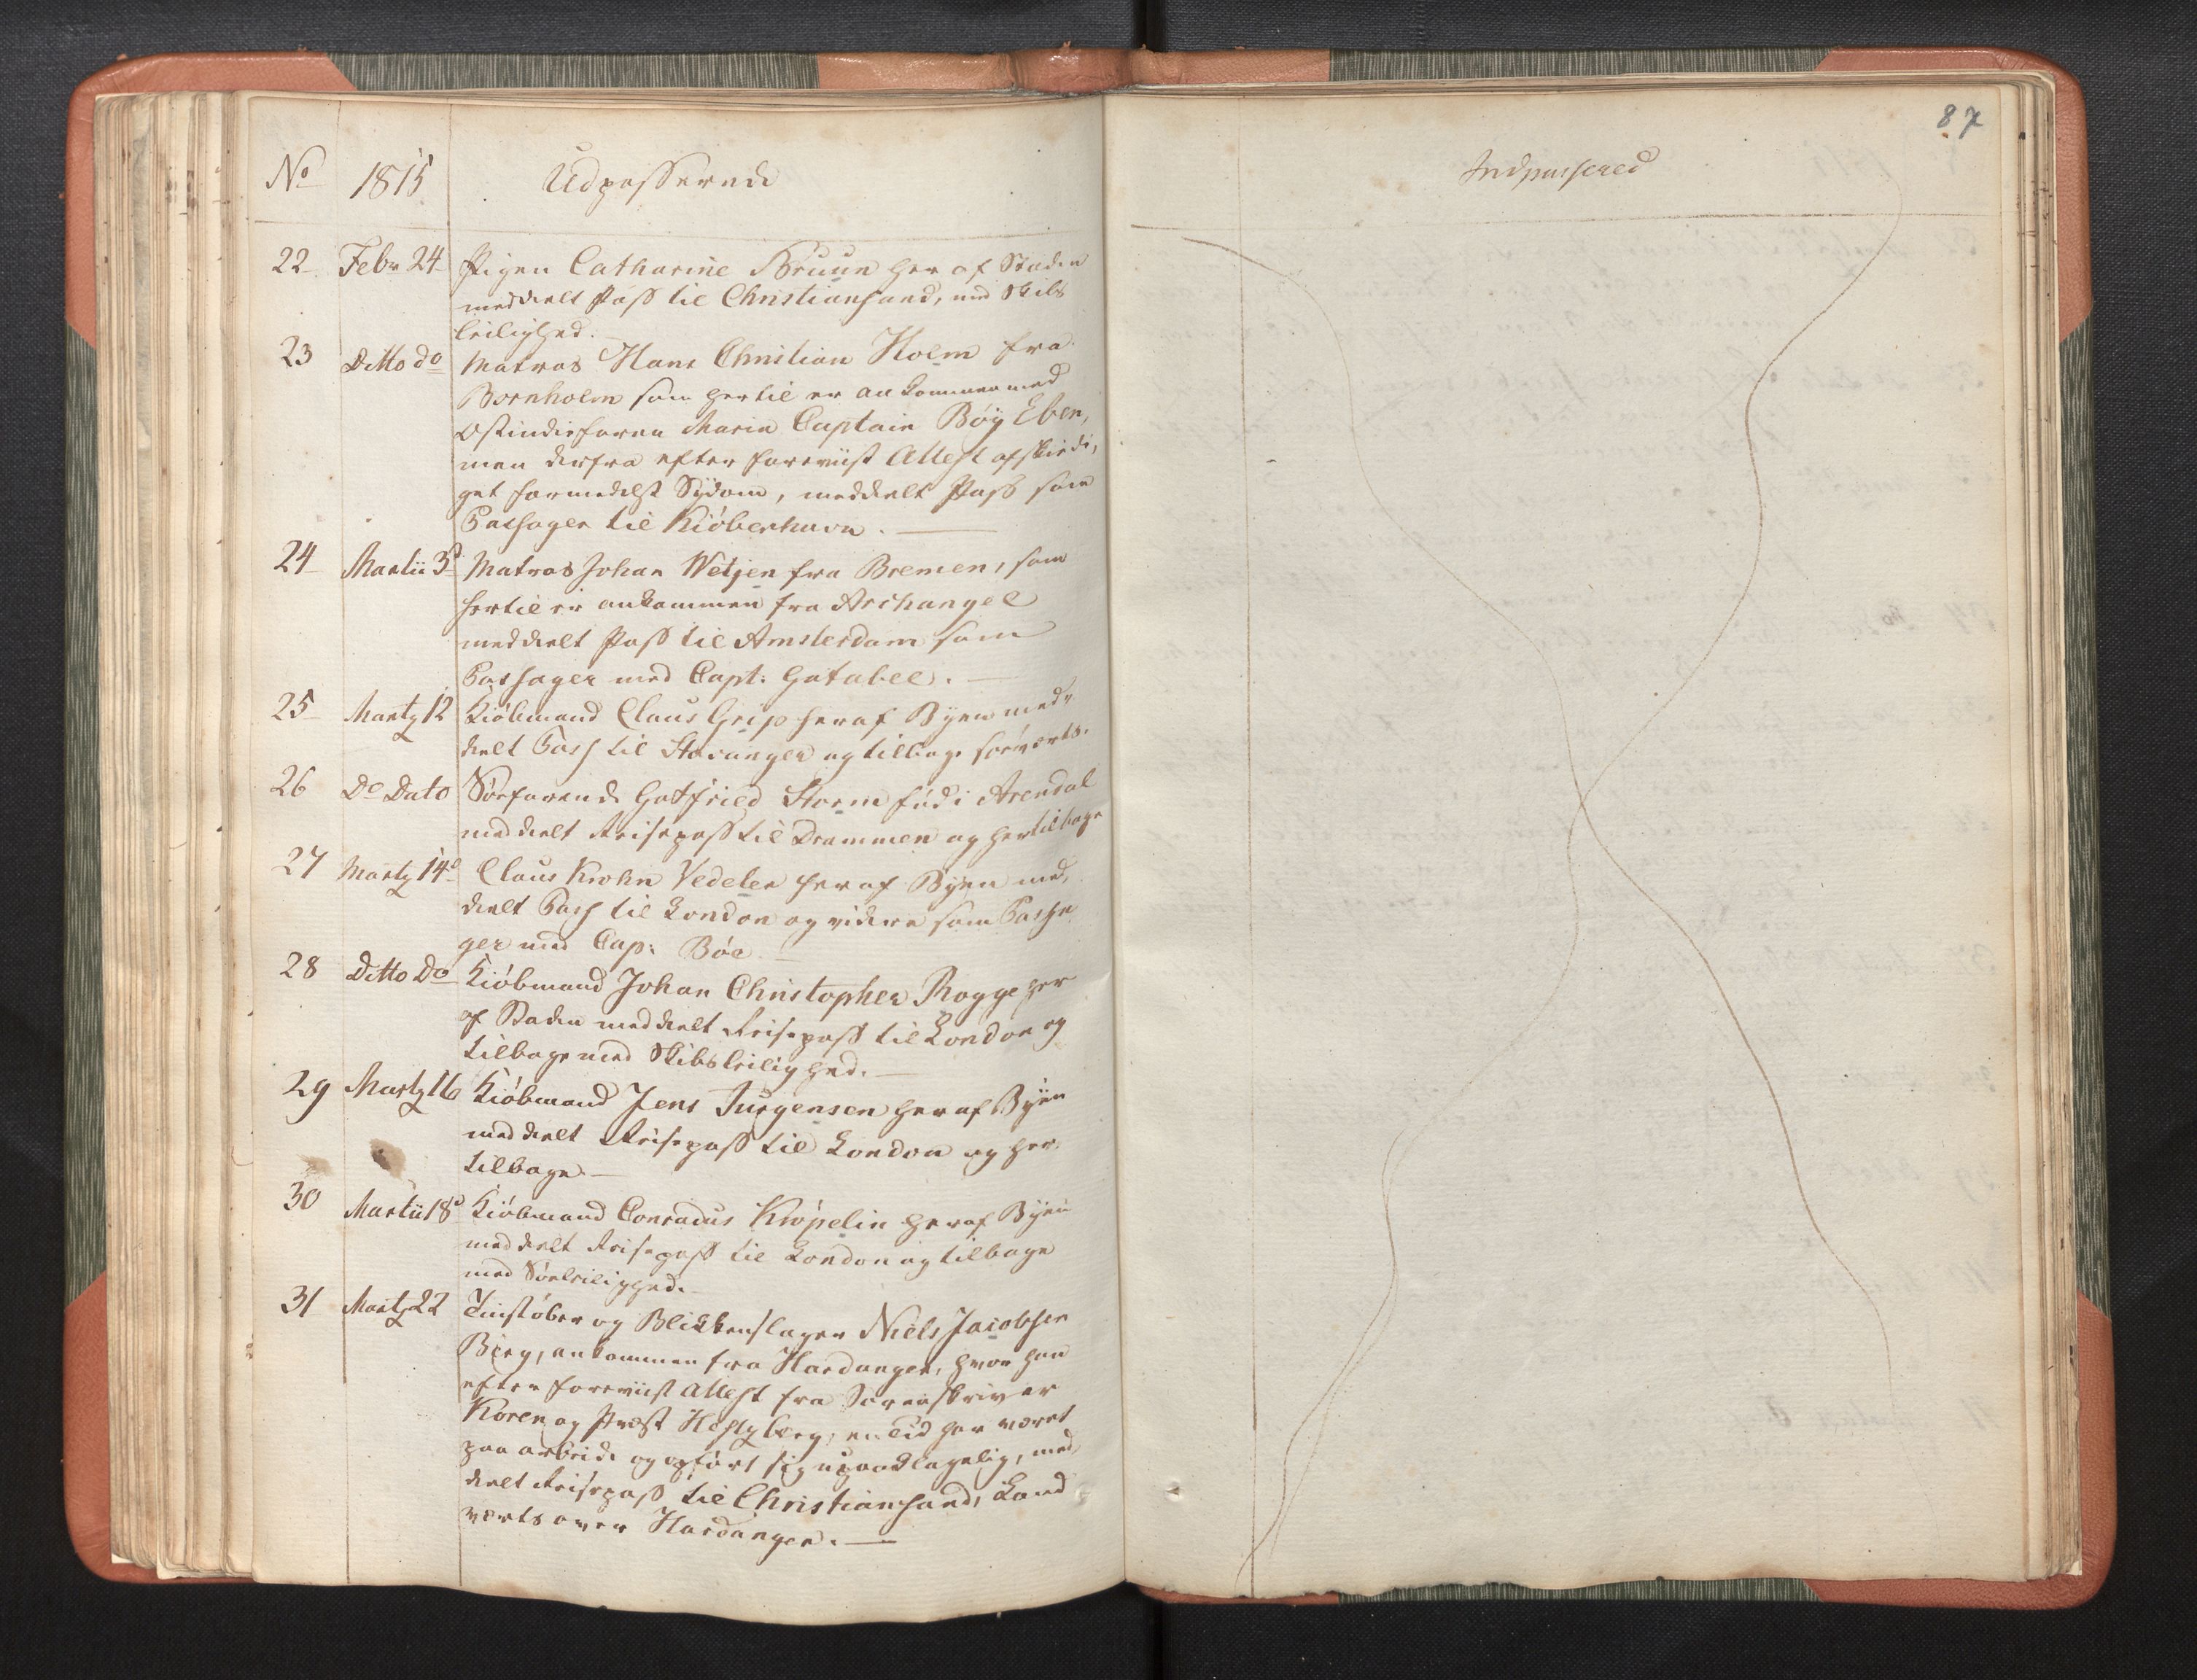 87
No 1815 Udpasserede
Indpasserede
22 Febr 24 Pigen Catharine Bruun her af Staden
meddeelt Pass til Christiansand, med Skibs
leilighed.
23 Ditto do Matros Hans Christian Holm fra
Bornholm som hertil er ankommen med
Ostindiefaren Maria Captain Böÿ Eben,
men derfra efter foreviist Attest afskiedi,
get formedelst Sÿdom, meddeelt Pass som
Passager til Kiöbenhavn.
24 Martii 3d Matros Johan Wetjen fra Bremen, som
hertil er ankommen fra Archangel
meddeelt Pass til Amsterdam som
Passager med Capt:
25 Marty 12 Kiöbmand Claus Grip her af Byen med,
deelt Pass til Stavanger og tilbage söeværts.
26 Do Dato Söefarende Gotfried Storm föd i Arendal
meddeelt Reisepass til Drammen og hertilbage
27 Marty 14d Claus Krohn Vedeler her af Byen med,
deelt Pass til London og videre som Passa
ger med Cap: Böe.
28 Ditto Do Kiöbmand Johan Christopher Rogge her
af Staden meddeelt Reisepass til London og
tilbage med Skibsleilighed.
29 Marty 16 Kiöbmand Jens Jurgensen her af Byen
meddeelt Reisepass til London og her
tilbage.
30 Martii 18d Kiöbmand Conradus Kröpelin her af Byen
meddeelt Reisepass til London og tilbage
med Söeleilighed.
31 Marty 22 Tinstöber og Blikkenslager Niels Jacobsen
Berg, ankommen fra Hardanger, hvor han
efter foreviist Attest fra Sorenskriver
Koren og Præst Hertzberg, en Tid har været
paa arbeide og opfört sig upaaklagelig, med,
deelt Reisepass til Christiansand, Land
værts over Hardanger.